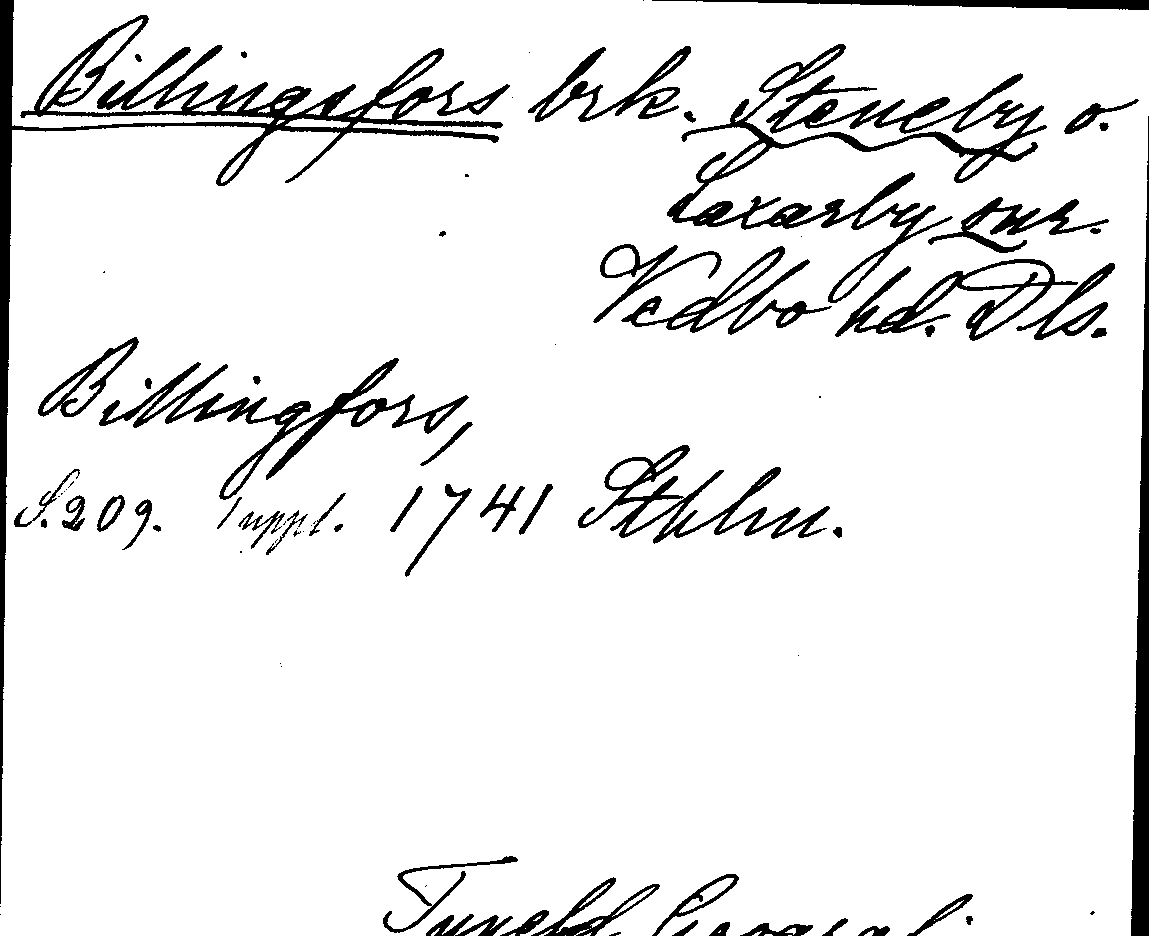 Billingsfors brk. Steneby o.
Laxarby snr.
Vedbo hd. Dls.
Billingfors,
S. 209. Suppl. 1741 Sthlm.
Tuneld Geografi